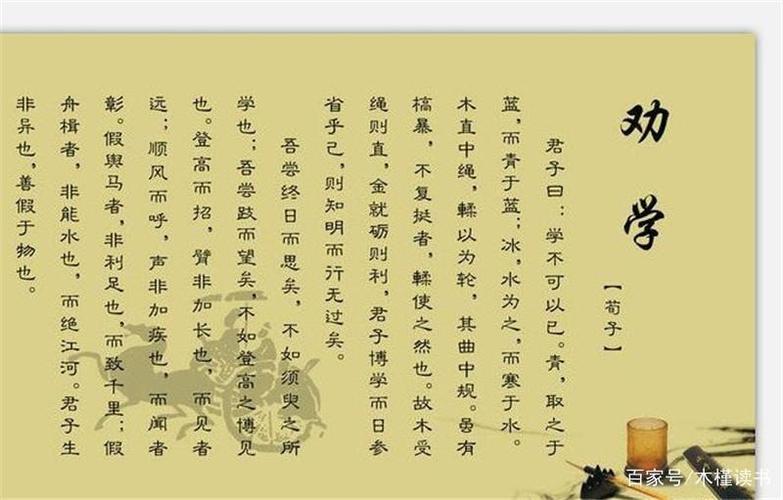 劝学
【荀子】
君子曰：学不可以已。青，取之于
蓝，而青于蓝；冰，水为之，而寒于水。
木直中绳，輮以为轮，其曲中规。虽有
槁暴，不复挺者，輮使之然也。故木受
绳则直，金就砺则利，君子博学而日参
省乎己，则知明而行无过矣。
吾尝终日而思矣，不如须臾之所
学也；吾尝跂而望矣，不如登高之博见
也。登高而招，臂非加长也，而见者
远；顺风而呼，声非加疾也，而闻者
彰。假舆马者，非利足也，而致千里；假
舟楫者，非能水也，而绝江河。君子生
非异也，善假于物也。
百家号/木槿读书